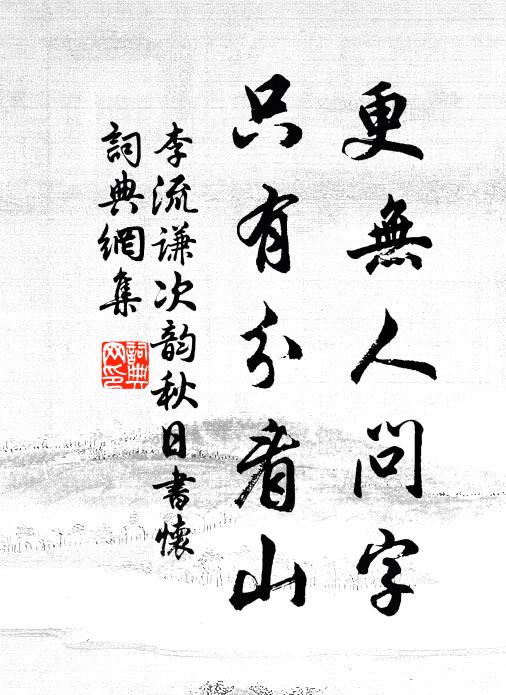 更無人問字
只有分看山
李流謙次韵秋日書懷
詞典網集
詞典網印